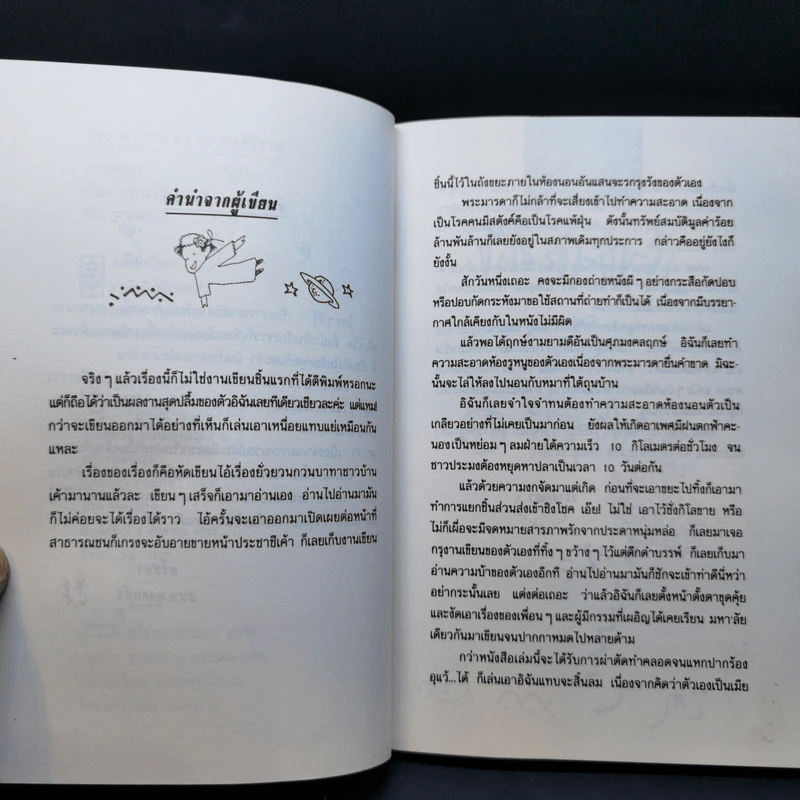 คำนำจากผู้เขียน
จริงๆ แล้วเรื่องนี้ก็ไม่ใช่งานเขียนชิ้นแรกที่ได้ตีพิมพ์หรอกนะ
แต่ก็ถือได้ว่าเป็นผลงานสุดปลื้มของตัวอิฉันเลยทีเดียวเชียวละค่ะ แต่แหม!
กว่าจะเขียนออกมาได้อย่างที่เห็นก็เล่นเอาเหนื่อยแทบแย่เหมือนกัน
แหละ
เรื่องของเรื่องก็คือหัดเขียนไอ้เรื่องยั่วยวนกวนบาทาชาวบ้าน
เค้ามานานแล้วละ เขียนๆ เสร็จก็เอามาอ่านเอง อ่านไปอ่านมามัน
ก็ไม่ค่อยจะได้เรื่องได้ราว ไอ้ครั้นจะเอาออกมาเปิดเผยต่อหน้าที่
สาธารณชนก็เกรงจะอับอายขายหน้าประชาชีเค้า ก็เลยเก็บงานเขียน
ชิ้นนี้ไว้ในถังขยะภายในห้องนอนอันแสนจะรกรุงรังของตัวเอง
พระมารดาก็ไม่กล้าที่จะเสี่ยงเข้าไปทำความสะอาด เนื่องจาก
เป็นโรคคนมีสตังค์คือเป็นโรคแพ้ฝุ่น ดังนั้นทรัพย์สมบัติมูลค่าร้อย
ล้านพันล้านก็เลยยังอยู่ในสภาพเดิมทุกประการ กล่าวคืออยู่ยังไงก็
ยังงั้น
สักวันหนึ่งเถอะ คงจะมีกองถ่ายหนังผีๆ อย่างกระสือกัดปอบ
หรือปอบกัดกระหังมาขอใช้สถานที่ถ่ายทำก็เป็นได้ เนื่องจากมีบรรยา-
กาศใกล้เคียงกับในหนังไม่มีผิด
แล้วพอได้ฤกษ์งามยามดีอันเป็นศุภมงคลฤกษ์ อิฉันก็เลยทำ
ความสะอาดห้องรูหนูของตัวเองเนื่องจากพระมารดายื่นคำขาด มิฉะ-
นั้นจะไล่ให้ลงไปนอนกับหมาที่ใต้ถุนบ้าน
อิฉันก็เลยจำใจจำทนต้องทำความสะอาดห้องนอนตัวเป็น
เกลียวอย่างที่ไม่เคยเป็นมาก่อน ยังผลให้เกิดอาเพศมีฝนตกฟ้าคะ-
นองเป็นหย่อมๆ ลมฝ่ายใต้ความเร็ว 10 กิโลเมตรต่อชั่วโมง จน
ชาวประมงต้องหยุดหาปลาเป็นเวลา 10 วันต่อกัน
แล้วด้วยความงกจัดมาแต่เกิด ก่อนที่จะเอาขยะไปทิ้งก็เอามา
ทำการแยกชิ้นส่วนส่งเข้าชิงโชค เอ๊ย! ไม่ใช่ เอาไว้ชั่งกิโลขาย หรือ
ไม่ก็เผื่อจะมีจดหมายสารภาพรักจากประดาหนุ่มหล่อ ก็เลยมาเจอ
กรุงานเขียนของตัวเองที่ทิ้งๆ ขว้างๆ ไว้แต่ดึกดำบรรพ์ ก็เลยเก็บมา
อ่านความบ้าของตัวเองอีกที อ่านไปอ่านมามันก็ชักจะเข้าท่าดีนี่หว่า
อย่ากระนั้นเลย แต่งต่อเถอะ ว่าแล้วอิฉันก็เลยตั้งหน้าตั้งตาขุดคุ้ย
และงัดเอาเรื่องของเพื่อนๆ และผู้มีกรรมที่เผอิญได้เคยเรียน มหาลัย
เดียวกันมาเขียนจนปากกาหมดไปหลายด้าม
กว่าหนังสือเล่มนี้จะได้รับการผ่าตัดทำคลอดจนแหกปากร้อง
อุแว้...ได้ ก็เล่นเอาอิฉันแทบจะสิ้นลม เนื่องจากคิดว่าตัวเองเป็นเมีย